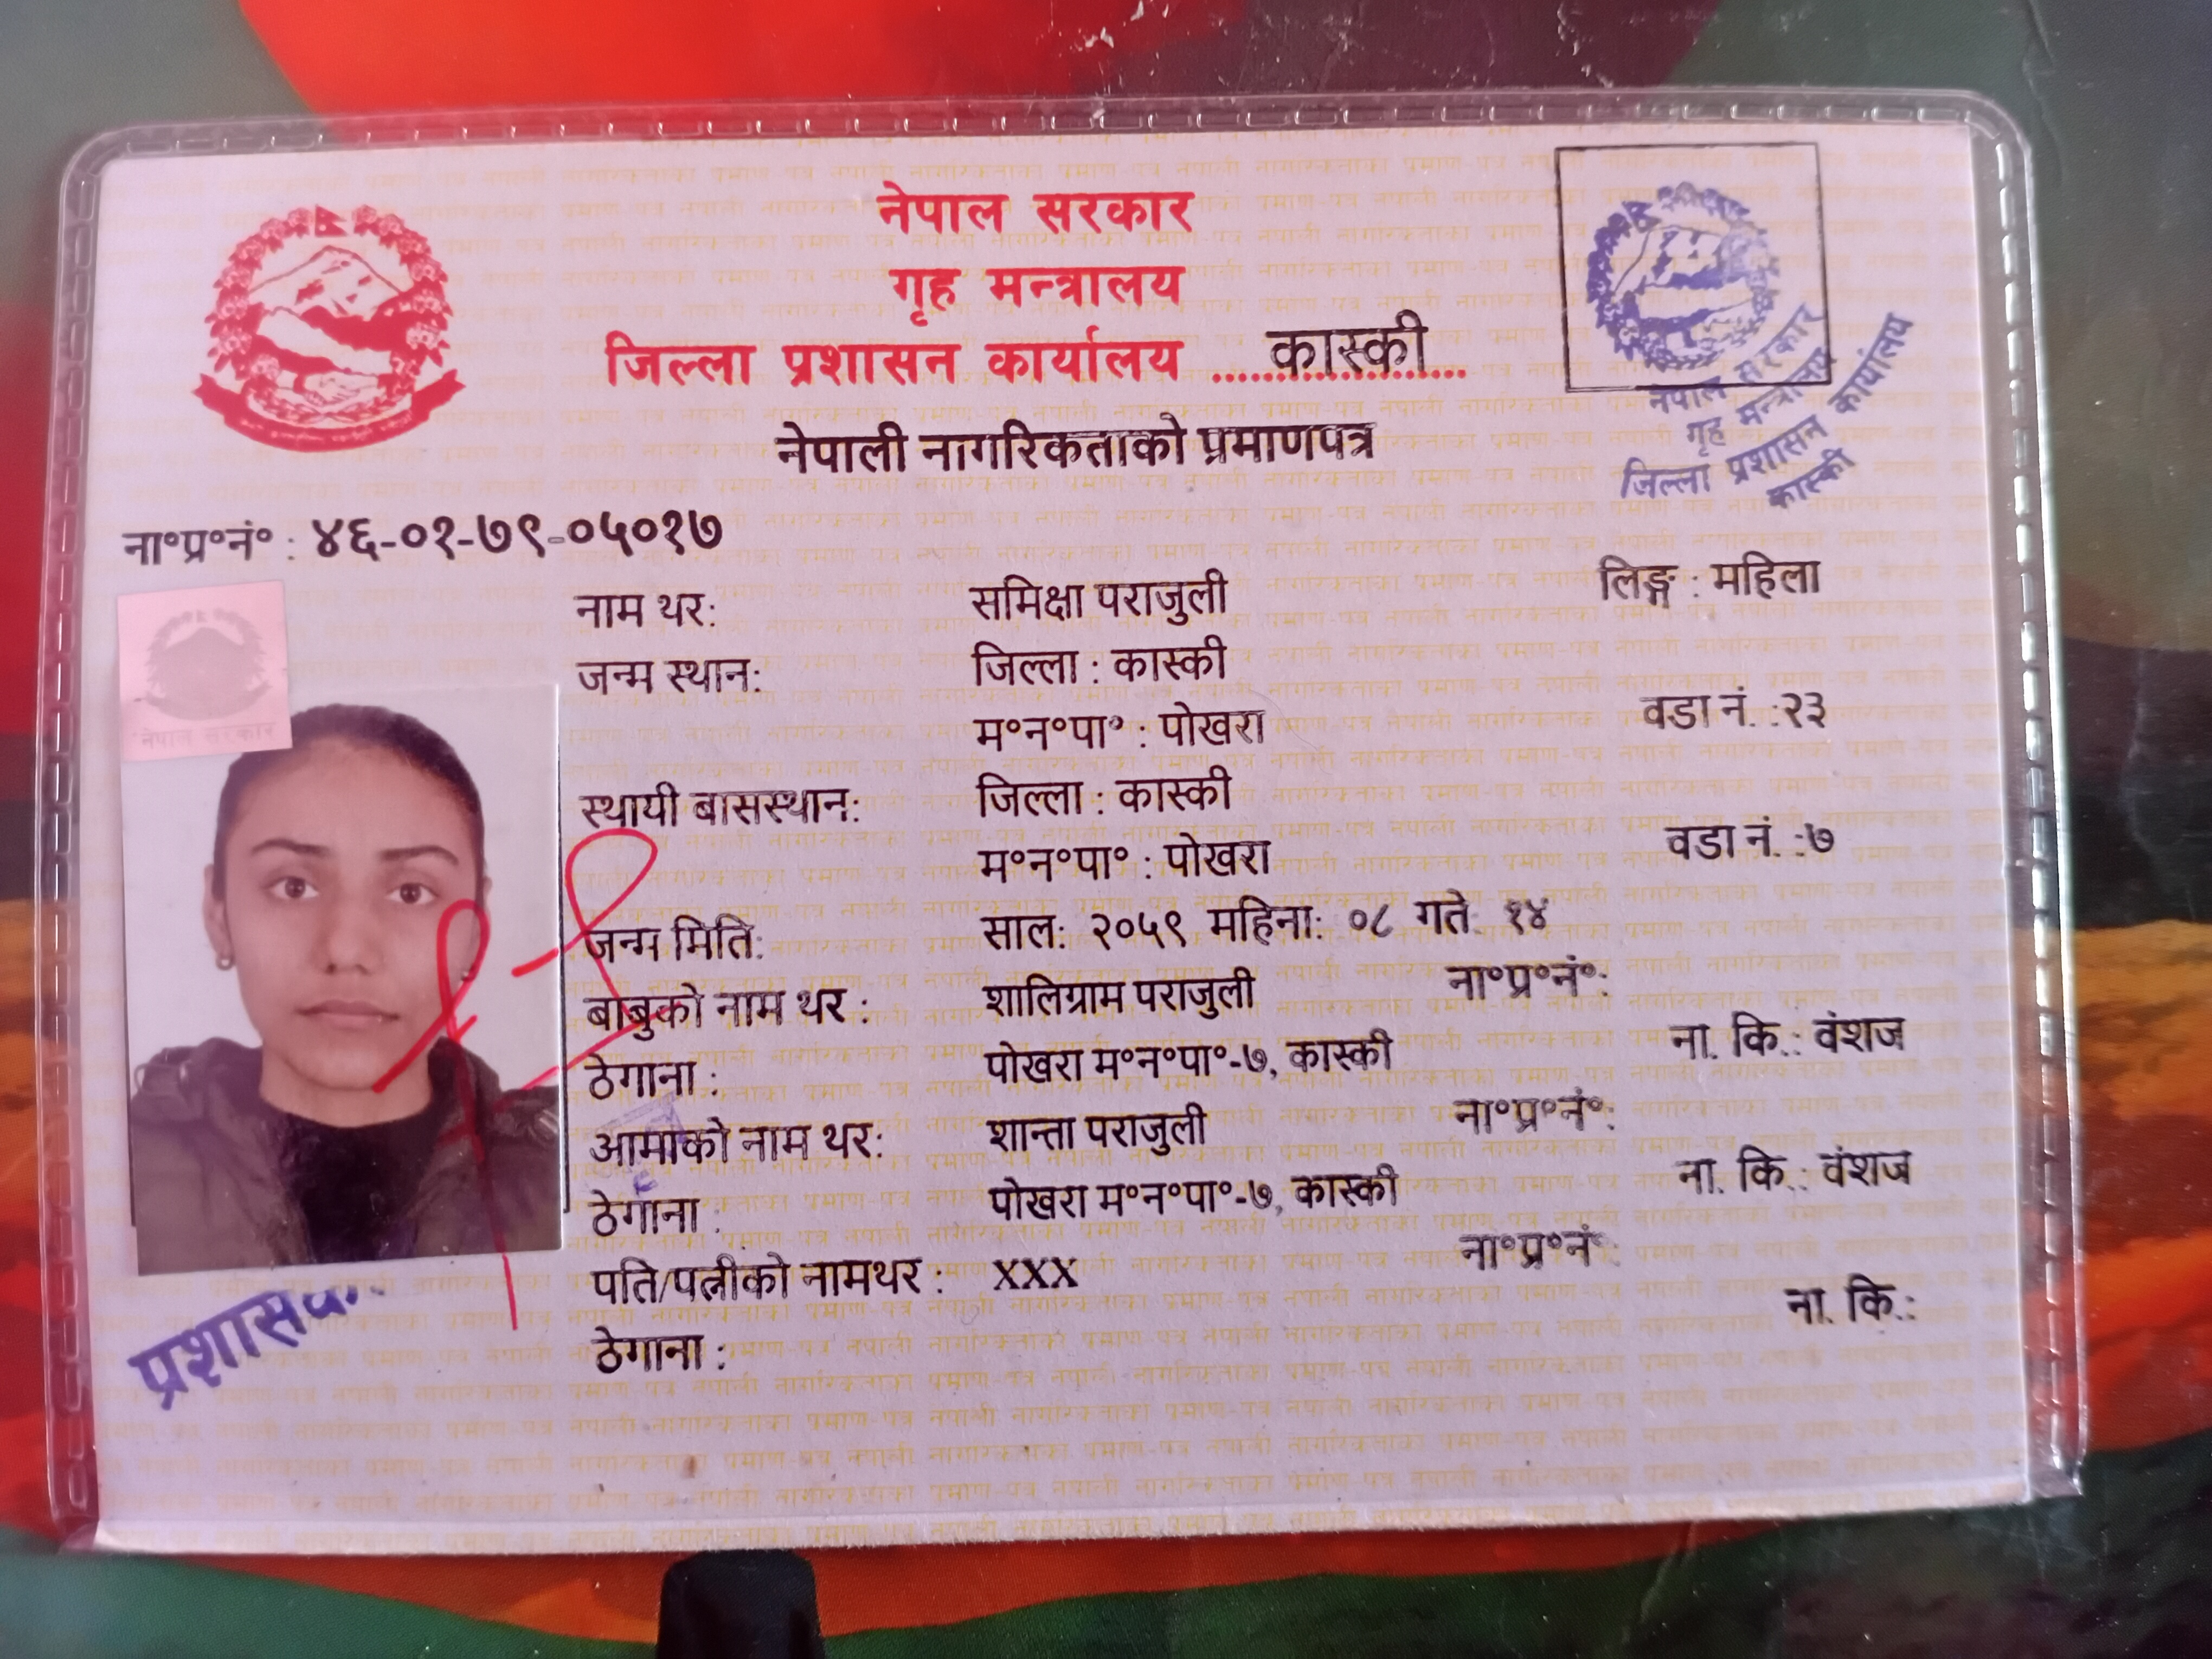 नेपाल सरकार
गृह मन्त्रालय
जिल्ला प्रशासन कार्यालय ....कास्की....
नेपाली नागरिकताको प्रमाणपत्र
नेपाल सरकार
गृह मन्त्रालय
जिल्ला प्रशासन कार्यालय
कास्की
ना॰प्र॰नं॰ : ४६-०१-७९-०५०१७
नेपाल सरकार
नाम थर: समिक्षा पराजुली लिङ्ग : महिला
जन्म स्थान: जिल्ला : कास्की
म॰न॰पा॰ : पोखरा वडा नं. :२३
स्थायी बासस्थान: जिल्ला : कास्की
म॰न॰पा॰ : पोखरा वडा नं. :७
जन्म मिति: साल: २०५९ महिना: ०८ गते: १४
बाबुको नाम थर : शालिग्राम पराजुली ना॰प्र॰नं॰:
ठेगाना : पोखरा म॰न॰पा॰-७, कास्की ना. कि.: वंशज
आमाको नाम थर: शान्ता पराजुली ना॰प्र॰नं॰:
ठेगाना : पोखरा म॰न॰पा॰-७, कास्की ना. कि.: वंशज
पति/पत्नीको नामथर : XXX ना॰प्र॰नं॰:
ठेगाना : ना. कि.: